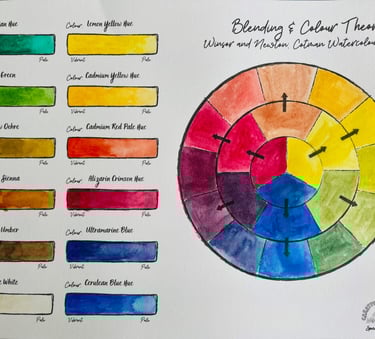 Blending & Colour Theor
Winsor and Newton, Cotman Watercolou
an Hue
Pale
Colour: Lemon Yellow Hue
Vibrant Pale
Green
Pale
Colour: Cadmium Yellow Hue
Vibrant Pale
Ochre
Pale
Colour: Cadmium Red Pale Hue
Vibrant Pale
Sienna
Pale
Colour: Alizarin Crimson Hue
Vibrant Pale
Umber
Pale
Colour: Ultramarine Blue
Vibrant Pale
White
Pale
Colour: Cerulean Blue Hue
Vibrant Pale